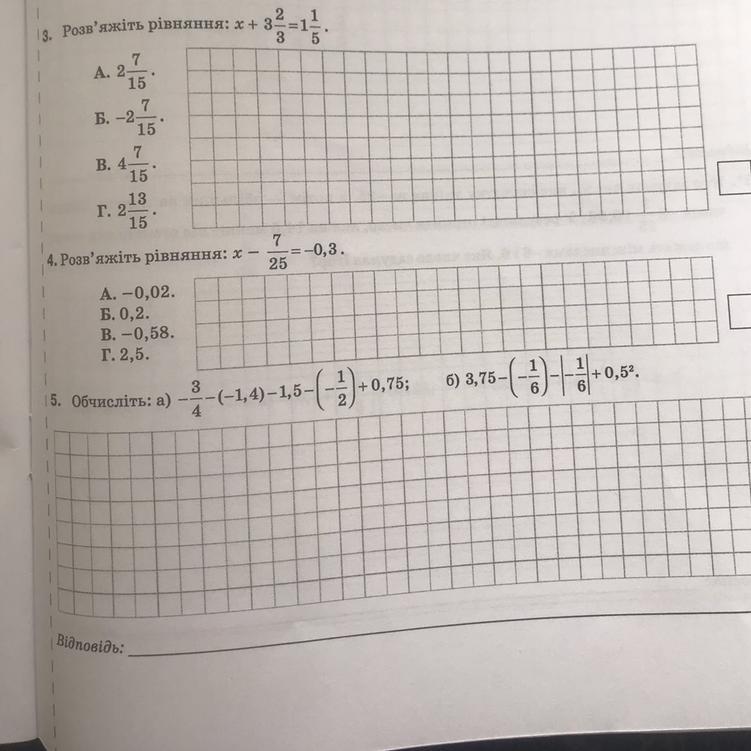 3. Розв'яжіть рівняння: x + 3 2/3 = 1 1/5.
А. 2 7/15.
Б. −2 7/15.
В. 4 7/15.
Г. 2 13/15.
4. Розв'яжіть рівняння: x − 7/25 = −0,3.
А. −0,02.
Б. 0,2.
В. −0,58.
Г. 2,5.
5. Обчисліть: а) −3/4 − (−1,4) − 1,5 − (−1/2) + 0,75; б) 3,75 − (−1/6) − |−1/6| + 0,5².
Відповідь: